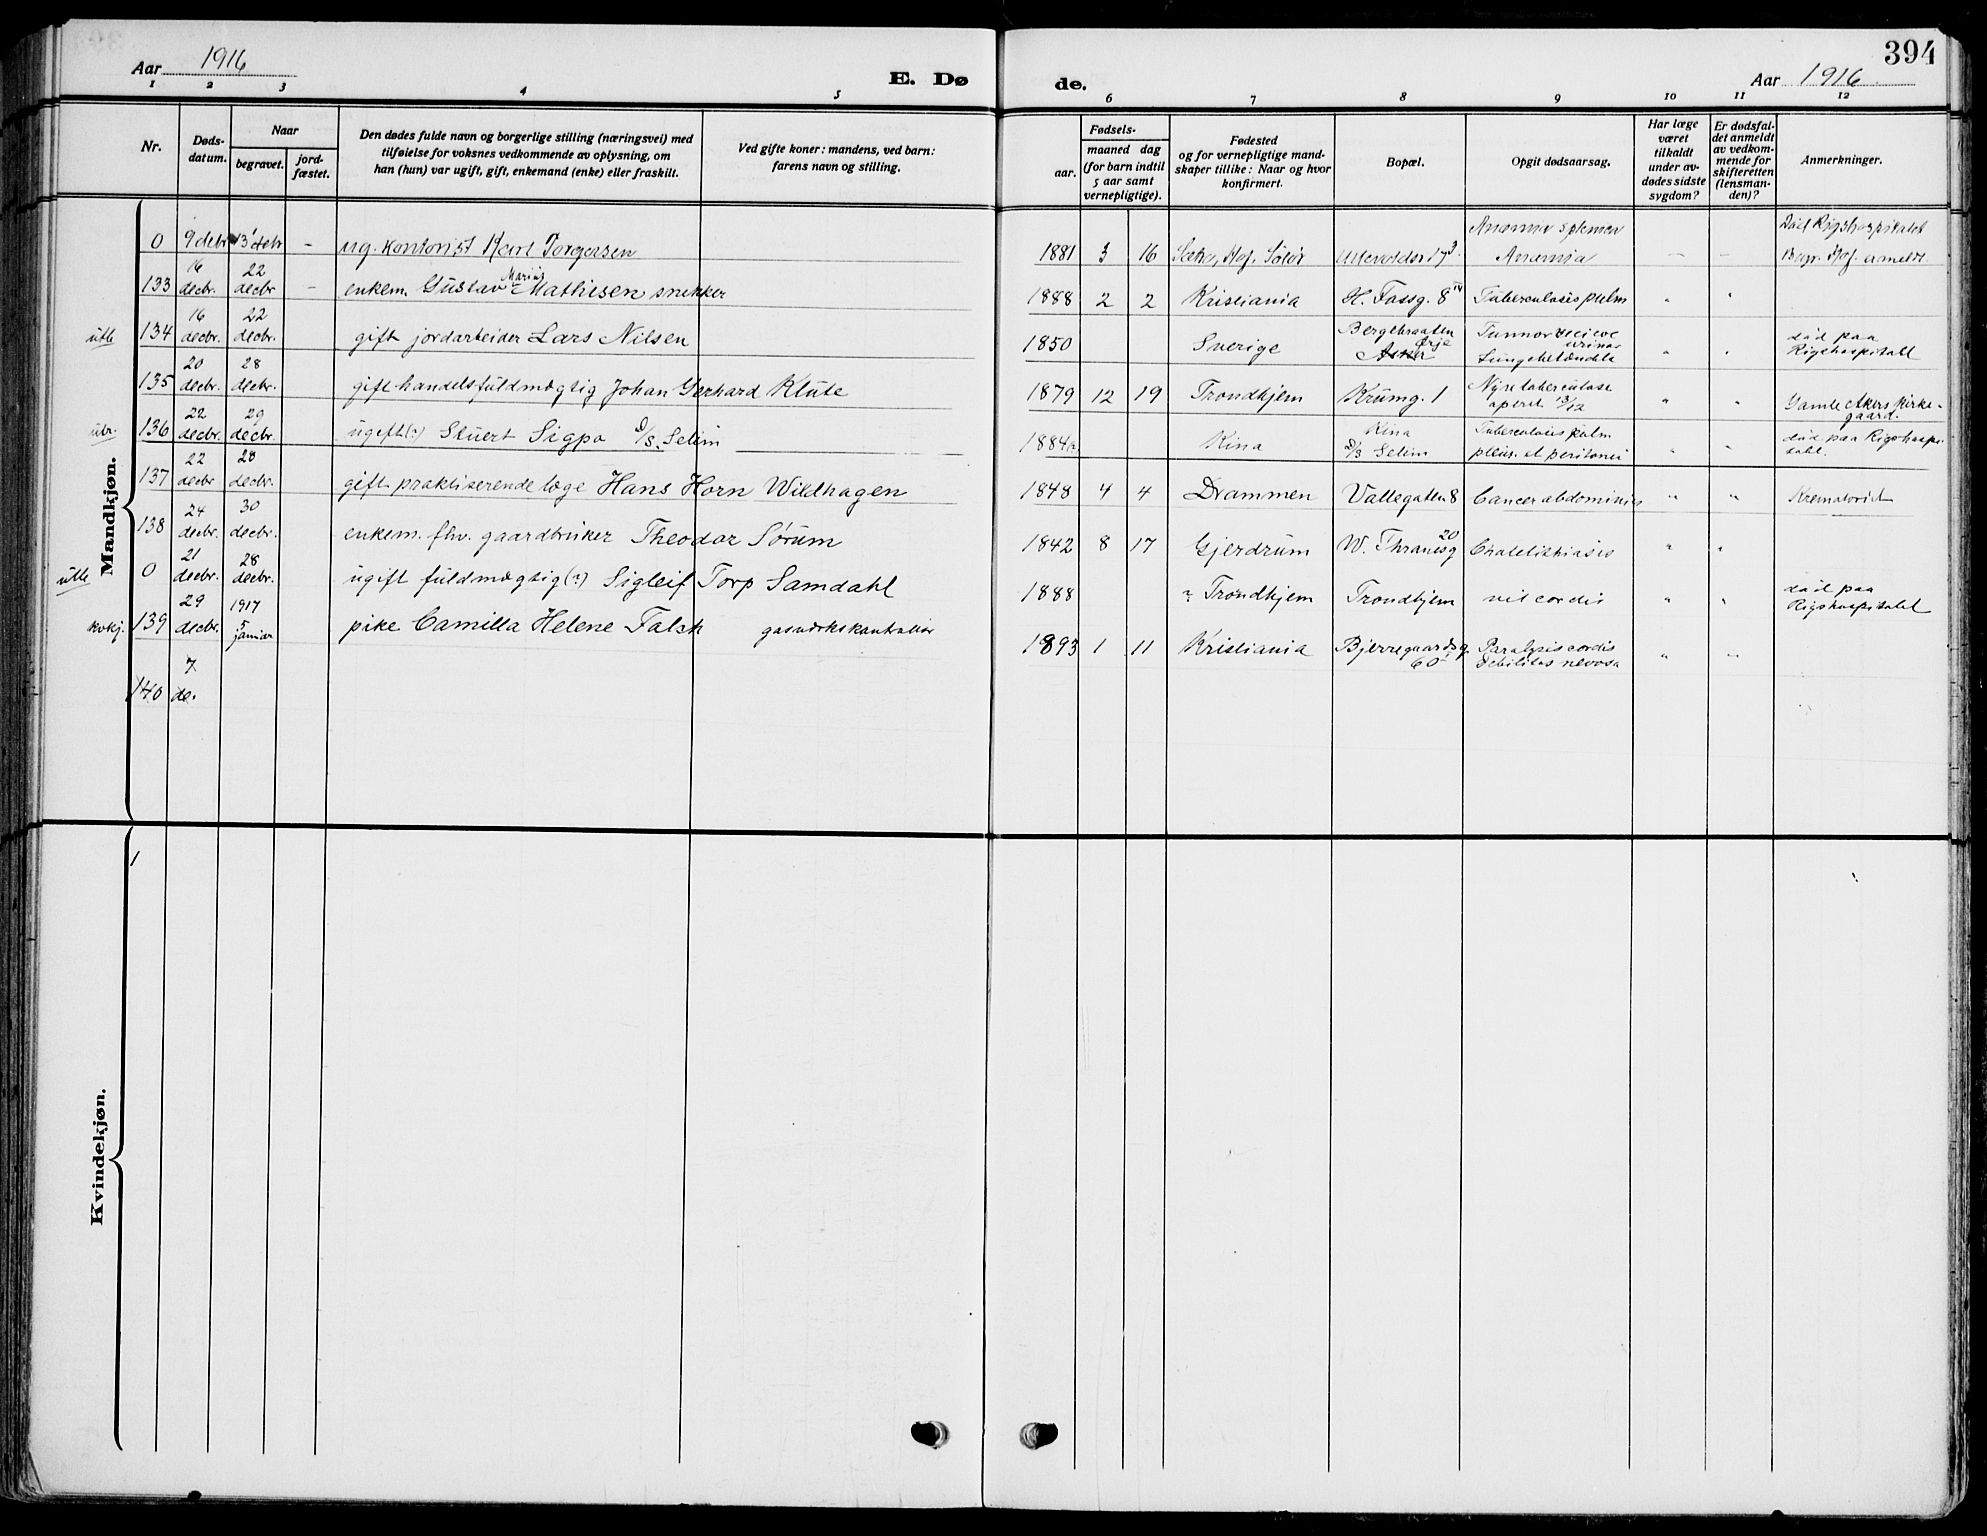 394
Aar 1916
E. Dø
de.
Aar 1916
1 2 3 4 5 6 7 8 9 10 11 12
Nr.
Døds-
datum.
Naar
begravet.
jord-
fæstet.
Den dødes fulde navn og borgerlige stilling (næringsvei) med
tilføielse for voksnes vedkommende av oplysning, om
han (hun) var ugift, gift, enkemand (enke) eller fraskilt.
Ved gifte koner: mandens, ved barn:
farens navn og stilling.
Fødsels-
aar.
maaned dag
(for barn indtil
5 aar samt
vernepligtige).
Fødested
og for vernepligtige mand-
skaper tillike: Naar og hvor
konfirmert.
Bopæl.
Opgit dødsaarsag.
Har læge
været
tilkaldt
under av-
dødes sidste
sygdom?
Er dødsfal-
det anmeldt
av vedkom-
mende for
skifteretten
(lensman-
den)?
Anmerkninger.
Mandkjøn.
0 9 debr 13 debr – ug. kontorist Karl Torgersen
1881 3 16 Hof. Solør 17 Anæmia – – Død Rigshospitalet
133 16 decbr. 22 decbr – enkem. Gustav Marius Mathisen snekker
1888 2 2 Kristiania H. Fossg. 8 IV Tuberculosis pulm " "
utb 134 16 decbr. 22 decbr. gift jordarbeider Lars Nilsen
1850 Sverige Ørje Lungebetændels " " død paa
Rigshospitalet
135 20 decbr. 28 decbr. gift handelsfuldmægtig Johan Gerhard Klute
1879 12 19 Trondhjem Krumg. 1 Nyretuberculose
operet 13/12 " " Gamle Akers kirke-
gaard.
ubr. 136 22 decbr. 29 decbr. ugift(?) Stuert Sigpo D/S. Selim
1884 Kina Kina
D/S Selim Tuberculosis pulm
pleur. et peritonei " " død paa Rigshospi-
talet.
137 22 decbr 28 decbr. gift praktiserende læge Hans Horn Wildhagen
1848 4 4 Drammen Vallegaten 8 Cancer abdominis " " Krematoriet
138 24 decbr. 30 decbr. enkem. fhv. gaardbruker Theodor Sørum
1842 8 17 Gjerdrum W. Thranesg 20 Cholelithiasis " "
utb 0 21 decbr. 28 decbr. ugift fuldmægtig(?) Sigleif Torp Samdahl
1888 ? Trondhjem Trondhjem vit cordis " " død paa
Rigshospitalet
kvkj. 139 29 decbr. 1917 5 januar pike Camilla Helene Falsk gasverkskontrollør
1893 1 11 Kristiania Bjerregaardsg.
60 I Paralysis cordis
debilitas nevosa " "
140 7. de.
Kvindekjøn.
1